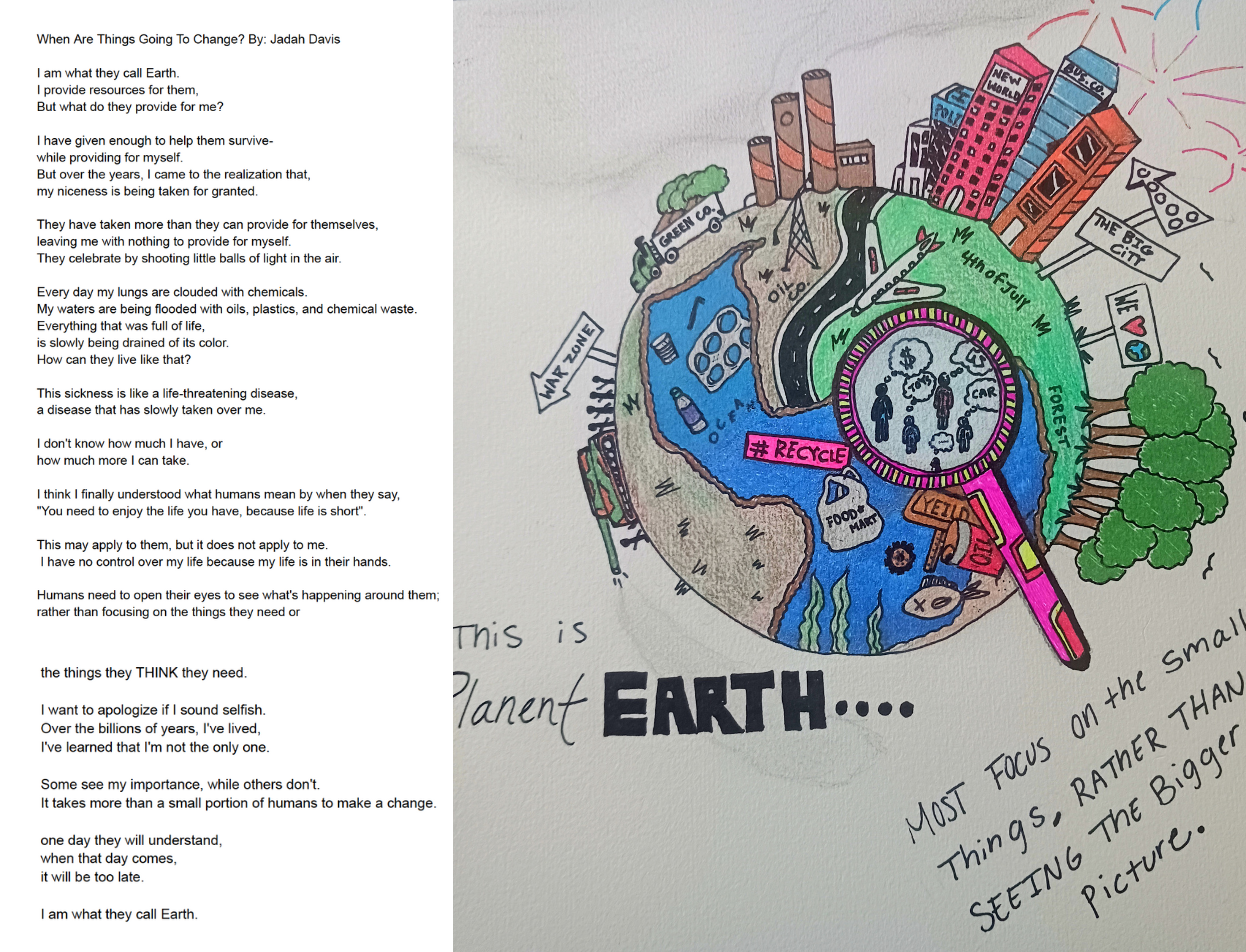 When Are Things Going To Change? By: Jadah Davis
I am what they call Earth.
I provide resources for them,
But what do they provide for me?
I have given enough to help them survive-
while providing for myself.
But over the years, I came to the realization that,
my niceness is being taken for granted.
They have taken more than they can provide for themselves,
leaving me with nothing to provide for myself.
They celebrate by shooting little balls of light in the air.
Every day my lungs are clouded with chemicals.
My waters are being flooded with oils, plastics, and chemical waste.
Everything that was full of life,
is slowly being drained of its color.
How can they live like that?
This sickness is like a life-threatening disease,
a disease that has slowly taken over me.
I don't know how much I have, or
how much more I can take.
I think I finally understood what humans mean by when they say,
"You need to enjoy the life you have, because life is short".
This may apply to them, but it does not apply to me.
I have no control over my life because my life is in their hands.
Humans need to open their eyes to see what's happening around them;
rather than focusing on the things they need or
the things they THINK they need.
I want to apologize if I sound selfish.
Over the billions of years, I've lived,
I've learned that I'm not the only one.
Some see my importance, while others don't.
It takes more than a small portion of humans to make a change.
one day they will understand,
when that day comes,
it will be too late.
I am what they call Earth.
NEW
WORLD
BUS. CO.
GREEN CO.
THE BIG
CITY
4th of July
OIL
CO.
WE
WAR ZONE
OCEAN
$
TOYS
CAR
FOREST
# RECYCLE
FOOD
MART
YEILD
OIL
This is
Planent EARTH....
MOST FOCUS on the small
Things, RATHER THAN
SEEING THE Bigger
Picture.